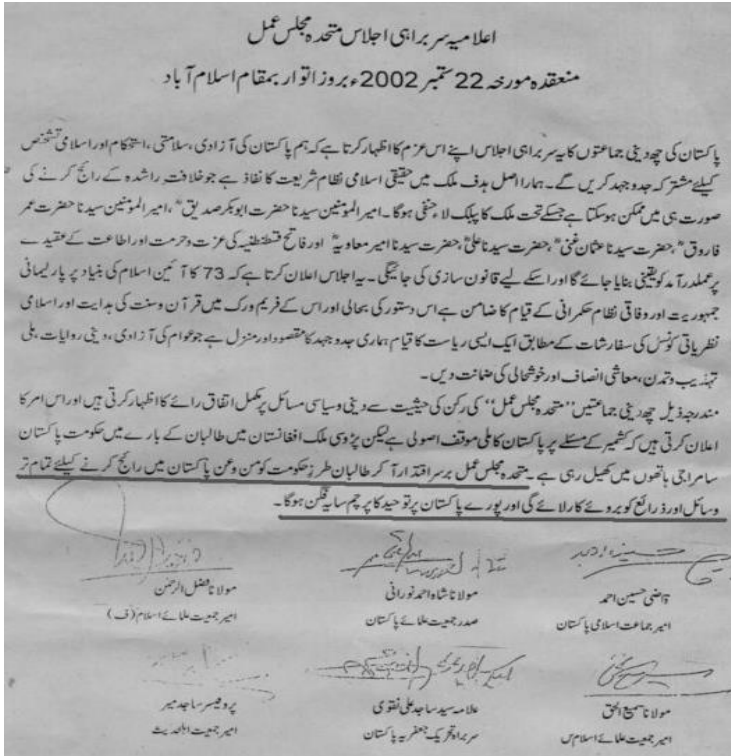 اعلامیہ سربراہی اجلاس متحدہ مجلس عمل
منعقدہ مورخہ 22 ستمبر 2002ء بروز اتوار بمقام اسلام آباد
پاکستان کی چھ دینی جماعتوں کا یہ سربراہی اجلاس اپنے اس عزم کا اظہار کرتا ہے کہ ہم پاکستان کی آزادی، سلامتی، استحکام اور اسلامی تشخص
کیلئے مشترکہ جدوجہد کریں گے۔ ہمارا اصل ہدف ملک میں حقیقی اسلامی نظام شریعت کا نفاذ ہے جو خلافت راشدہ کے رائج کرنے کی
صورت ہی میں ممکن ہوسکتا ہے جسکے تحت ملک کا پبلک لاء حنفی ہوگا۔ امیرالمومنین سیدنا حضرت ابوبکر صدیقؓ، امیرالمومنین سیدنا حضرت عمر
فاروقؓ، حضرت سیدنا عثمان غنیؓ، حضرت سیدنا علیؓ، حضرت سیدنا امیر معاویہؓ اور فاتح قسطنطنیہ کی عزت و حرمت اور اطاعت کے عقیدے
پر عملدرآمد کو یقینی بنایا جائے گا اور اسکے لیے قانون سازی کی جائیگی۔ یہ اجلاس اعلان کرتا ہے کہ 73 کا آئین اسلام کی بنیاد پر پارلیمانی
جمہوریت اور وفاقی نظام حکمرانی کے قیام کا ضامن ہے اس دستور کی بحالی اور اس کے فریم ورک میں قرآن وسنت کی ہدایت اور اسلامی
نظریاتی کونسل کی سفارشات کے مطابق ایک ایسی ریاست کا قیام ہماری جدوجہد کا مقصود اور منزل ہے جو عوام کی آزادی، دینی روایات، ملی
تہذیب و تمدن، معاشی انصاف اور خوشحالی کی ضمانت دیں۔
مندرجہ ذیل چھ دینی جماعتیں "متحدہ مجلس عمل" کی رکن کی حیثیت سے دینی و سیاسی مسائل پر مکمل اتفاق رائے کا اظہار کرتی ہیں اور اس امر کا
اعلان کرتی ہیں کہ کشمیر کے مسئلے پر پاکستان کا ملی موقف اصولی ہے لیکن پڑوسی ملک افغانستان میں طالبان کے بارے میں حکومت پاکستان
سامراجی ہاتھوں میں کھیل رہی ہے۔ متحدہ مجلس عمل برسراقتدار آ کر طالبان طرز حکومت کو من وعن پاکستان میں رائج کرنے کیلئے تمام تر
وسائل اور ذرائع کو بروئے کار لائے گی اور پورے پاکستان پر توحید کا پرچم سایہ فگن ہوگا۔
قاضی حسین احمد
امیر جماعت اسلامی پاکستان
مولانا شاہ احمد نورانی
صدر جمعیت علمائے پاکستان
مولانا فضل الرحمٰن
امیر جمعیت علمائے اسلام (ف)
مولانا سمیع الحق
امیر جمعیت علمائے اسلام س
علامہ سید ساجد علی نقوی
سربراہ تحریک جعفریہ پاکستان
پروفیسر ساجد میر
امیر جمعیت اہلحدیث